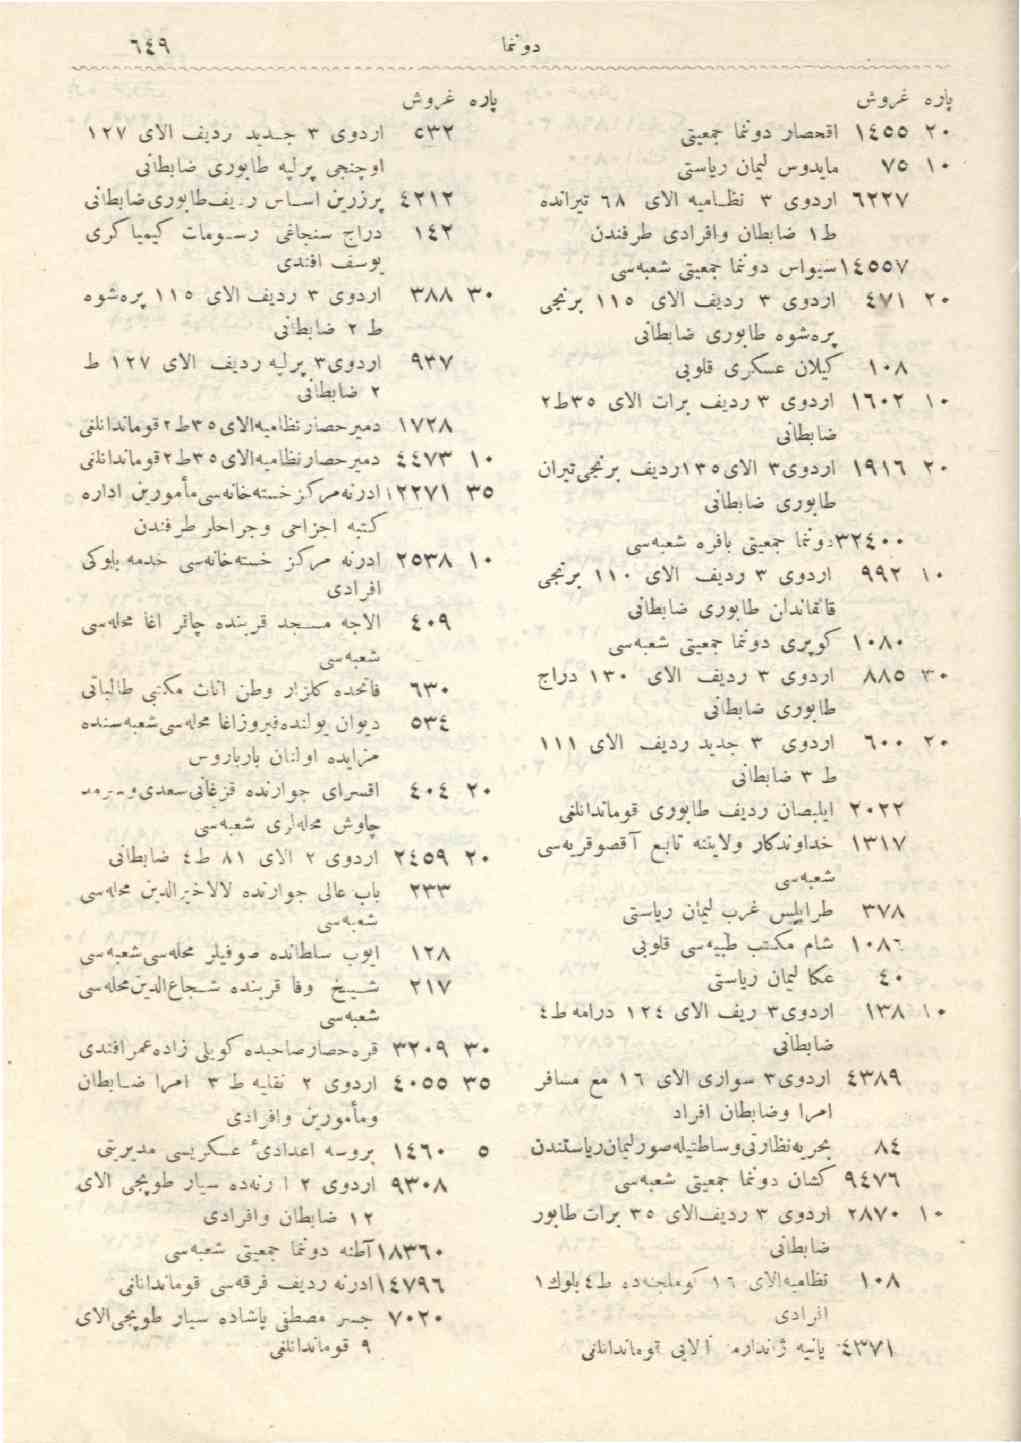 دونما
٦٤٩
پاره غروش
٢٠ ١٤٥٥ اقحصار دونما جمعیتی
١٠ ٧٥ مایدوس لیمان ریاستی
٦٢٢٧ اردوی ٣ نظامیه الای ٦٨ تیرانده
ط١ ضابطان وافرادی طرفندن
١٤٥٥٧ سیواس دونما جمعیتی شعبه‌سی
٢٠ ٤٧١ اردوی ٣ ردیف الای ١١٥ برنجی
پره‌شوه طابوری ضابطانی
١٠٨ کیلان عسکری قلوبی
١٠ ١٦٠٢ اردوی ٣ ردیف برات الای ٣٥ ط٢
ضابطانی
٢٠ ١٩١٦ اردوی٣ الای١٣٥ ردیف برنجی تیران
طابوری ضابطانی
٣٢٤٠٠ دونما جمعیتی بافره شعبه‌سی
١٠ ٩٩٢ اردوی ٣ ردیف الای ١١٠ برنجی
قائماندان طابوری ضابطانی
١٠٨٠ کوپری دونما جمعیتی شعبه‌سی
٣٠ ٨٨٥ اردوی ٣ ردیف الای ١٣٠ دراج
طابوری ضابطانی
٢٠ ٦٠٠ اردوی ٣ جدید ردیف الای ١١١
ط ٣ ضابطانی
٢٠٢٢ ایلبصان ردیف طابوری قوماندانلغی
١٣١٧ خداوندکار ولایتنه تابع آقصوقریه‌سی
شعبه‌سی
٣٧٨ طرابلس غرب لیمان ریاستی
١٠٨٦ شام مکتب طبیه‌سی قلوبی
٤٠ عکا لیمان ریاستی
١٠ ١٣٨ اردوی٣ ریف الای ١٢٤ درامه ط٤
ضابطانی
٤٣٨٩ اردوی٣ سواری الای ١٦ مع مسافر
امرا وضابطان افراد
٨٤ بحریه نظارتی وساطتیله صور لیمان ریاستندن
٩٤٧٦ کشان دونما جمعیتی شعبه‌سی
١٠ ٢٨٧٠ اردوی ٣ ردیف الای ٣٥ برات طابور
ضابطانی
١٠٨ نظامیه الای ١٦ کوملجنه‌ده ط٤ بلوك١
افرادی
٤٣٧١ یانیه ژاندارمه آلایی قوماندانلغی
پاره غروش
٥٣٢ اردوی ٣ جدید ردیف الای ١٢٧
اوچنجی پرلپه طابوری ضابطانی
٤٢١٢ پرزرین اساس ردیف طابوری ضابطانی
١٤٢ دراج سنجاغی رسومات کیمیاکری
یوسف افندی
٣٠ ٣٨٨ اردوی ٣ ردیف الای ١١٥ پره‌شوه
ط ٢ ضابطانی
٩٣٧ اردوی٣ پرلپه ردیف الای ١٢٧ ط
٢ ضابطانی
١٧٢٨ دمیرحصار نظامیه الای ٣٥ ط٢ قوماندانلغی
١٠ ٤٤٧٣ دمیرحصار نظامیه الای ٣٥ ط٢ قوماندانلغی
٣٥ ١٢٢٧١ ادرنه مرکز خسته‌خانه‌سی مأمورین اداره
کتبه اجزاجی وجراحلر طرفندن
١٠ ٢٥٣٨ ادرنه مرکز خسته‌خانه‌سی خدمه بلوکی
افرادی
٤٠٩ الاجه مسجد قربنده چاقر اغا محله‌سی
شعبه‌سی
٦٣٠ فاتحده کلزار وطن اناث مکتبی طالباتی
٥٣٤ دیوان یولنده فیروزاغا محله‌سی شعبه‌سنده
مزایده اولنان بارباروس
٢٠ ٤٠٤ اقسرای جوارنده قزغانی سعدی وسرمد
چاوش محله‌لری شعبه‌سی
٢٠ ٢٤٥٩ اردوی ٢ الای ٨١ ط٤ ضابطانی
٢٣٣ باب عالی جوارنده لالاخیرالدین محله‌سی
شعبه‌سی
١٢٨ ایوب سلطانده صوفیلر محله‌سی شعبه‌سی
٢١٧ شیخ وفا قربنده شجاع‌الدین محله‌سی
شعبه‌سی
٣٠ ٣٢٠٩ قره‌حصار صاحبده کوپلی زاده عمر افندی
٣٥ ٤٠٥٥ اردوی ٢ نقلیه ط ٣ امرا ضابطان
ومأمورین وافرادی
٥ ١٤٦٠ بروسه اعدادیٔ عسکریسی مدیریتی
٩٣٠٨ اردوی ٢ ادرنه‌ده سیار طوپجی الای
١٢ ضابطان وافرادی
١٨٣٦٠ آطنه دونما جمعیتی شعبه‌سی
١٤٧٩٦ ادرنه ردیف فرقه‌سی قوماندانلغی
٧٠٢٠ جسر مصطفی پاشاده سیار طوپجی الای
٩ قوماندانلغی